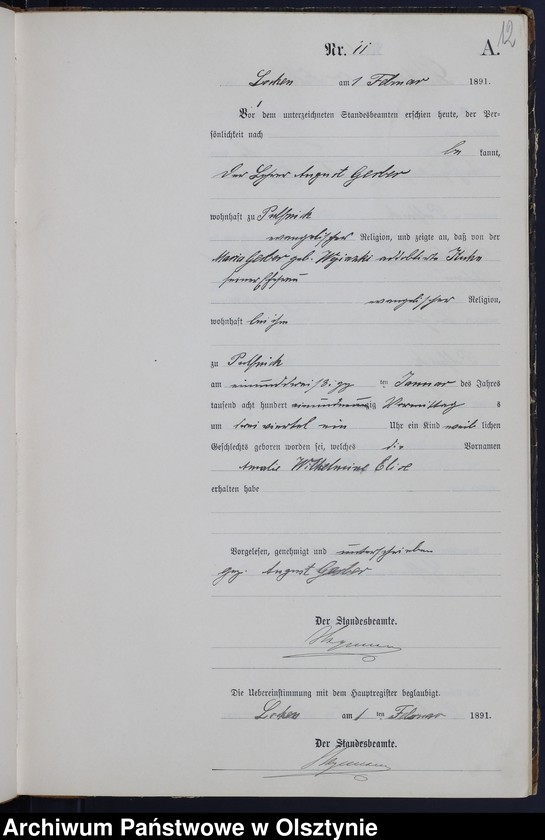 12
Nr. 11 A.
Locken am 1 Februar 1891.
Vor dem unterzeichneten Standesbeamten erschien heute, der Per-
sönlichkeit nach
be kannt,
Der Lehrer August Gerber
wohnhaft zu
evangelischer Religion, und zeigte an, daß von der
Maria Gerber geb.
seiner Ehefrau
evangelischer Religion,
wohnhaft bei ihm
zu
am einunddreißigsten ten Januar des Jahres
tausend acht hundert einundneunzig Vormittag s
um drei viertel ein Uhr ein Kind weib lichen
Geschlechts geboren worden sei, welches die Vornamen
Amalie Wilhelmine Elise
erhalten habe
Vorgelesen, genehmigt und unterschrieben
gez. August Gerber
Der Standesbeamte.
Die Uebereinstimmung mit dem Hauptregister beglaubigt.
Locken am 1 ten Februar 1891.
Der Standesbeamte.
Archiwum Państwowe w Olsztynie